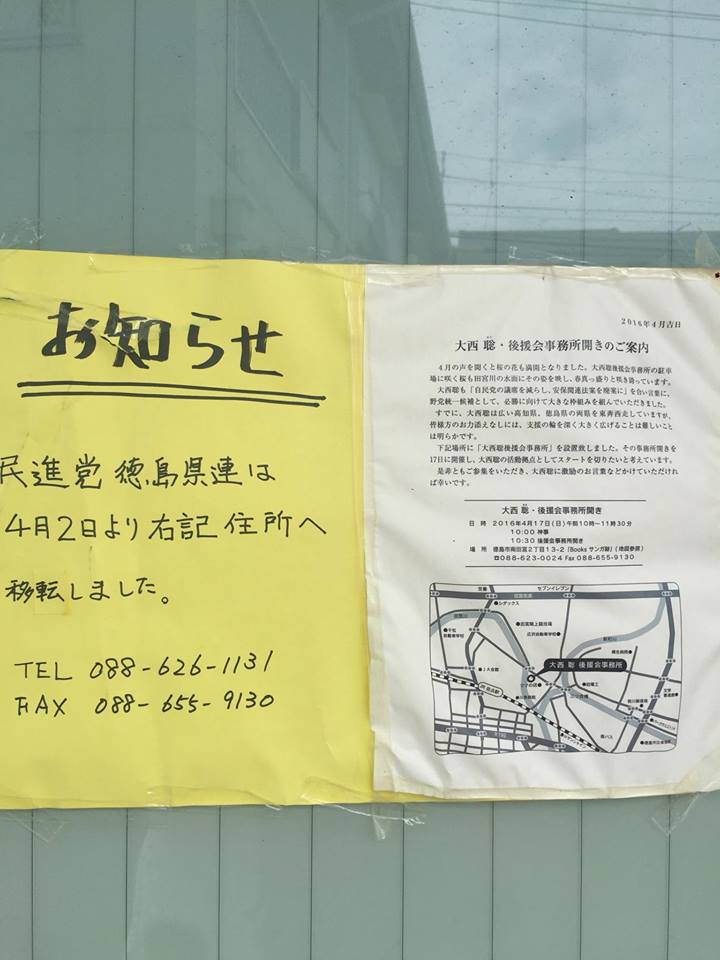 お知らせ
民進党 徳島県連は
4月2日より右記住所へ
移転しました。
TEL 088-626-1131
FAX 088-655-9130
2016年4月吉日
大西 聡・後援会事務所開きのご案内
4月の声を聞くと桜の花も満開となりました。大西聡後援会事務所の駐車
場に咲く桜も田宮川の水面にその姿を映し、春真っ盛りと咲き誇っています。
大西聡も「自民党の議席を減らし、安保関連法案を廃案に」を合い言葉に、
野党統一候補として、必勝に向けて大きな枠組みを組んでいただきました。
すでに、大西聡は広い高知県、徳島県の両県を東奔西走していますが、
皆様方のお力添えなしには、支援の輪を深く大きく広げることは難しいこと
は明らかです。
下記場所に「大西聡後援会事務所」を設置致しました。その事務所開きを
17日に開催し、大西聡の活動拠点としてスタートを切りたいと考えています。
是非ともご参集をいただき、大西聡に激励のお言葉などかけていただけれ
ば幸いです。
大西 聡・後援会事務所開き
日 時 2016年4月17日(日)午前10時〜11時30分
10:00 神事
10:30 後援会事務所開き
場 所 徳島市南田宮2丁目13-2「Books サンガ跡」(地図参照)
☎088-623-0024 Fax 088-655-9130
吉野
セブンイレブン
シダックス
田宮陸上競技場
広沢自動車学校
JA会館
大西 聡 後援会事務所